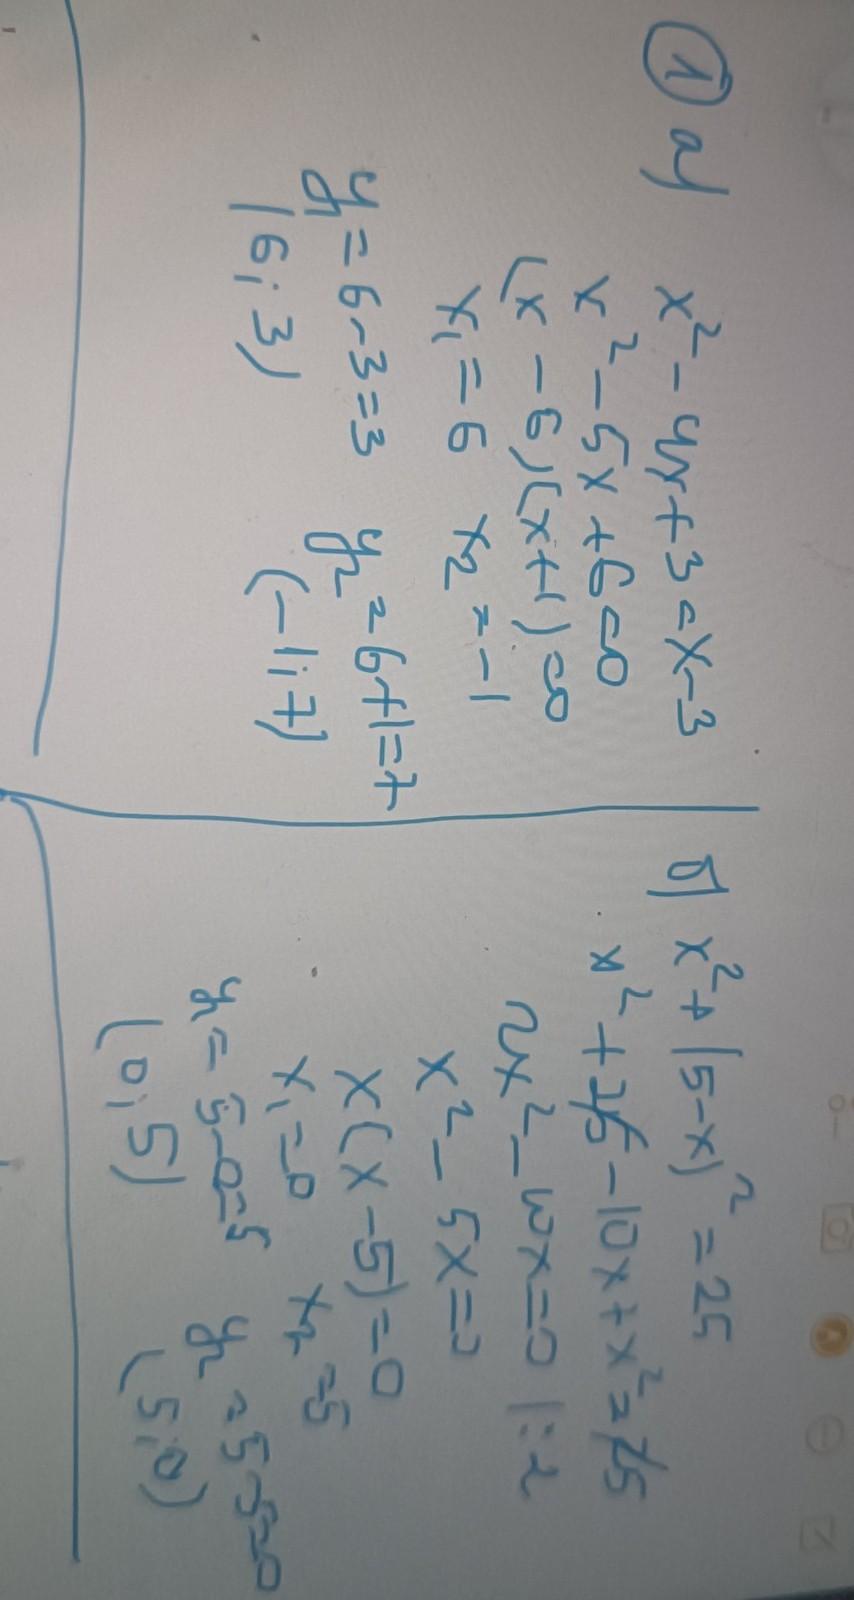 ① а) x² - 4x + 3 = x - 3
x² - 5x + 6 = 0
(x - 6)(x + 1) = 0
x₁ = 6 x₂ = -1
y₁ = 6 - 3 = 3 y₂ = 6 + 1 = 7
(6; 3) (-1; 7)
б) x² + (5 - x)² = 25
x² + 25 - 10x + x² = 25
2x² - 10x = 0 |: 2
x² - 5x = 0
x(x - 5) = 0
x₁ = 0 x₂ = 5
y₁ = 5 - 0 = 5 y₂ = 5 - 5 = 0
(0; 5) (5; 0)